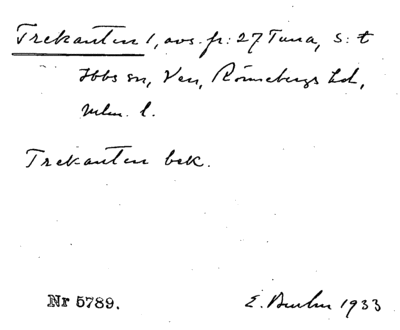 Trekanten 1, avs. fr: 27 Tuna, S:t
Ibbs sn, Ven, Rönnebergs hd,
Mlm. l.
Trekanten bek.
Nr 5789. E. 1933